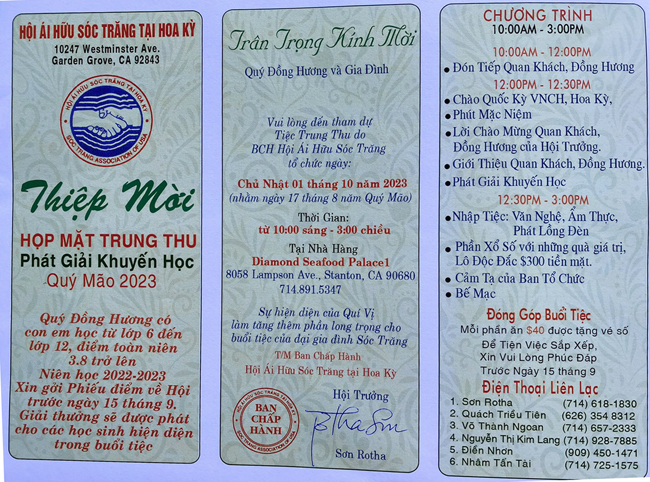 HỘI ÁI HỮU SÓC TRĂNG TẠI HOA KỲ
10247 Westminster Ave.
Garden Grove, CA 92843
HỘI ÁI HỮU SÓC TRĂNG TẠI HOA KỲ
SOC TRANG ASSOCIATION OF USA
Thiệp Mời
HỌP MẶT TRUNG THU
Phát Giải Khuyến Học
Quý Mão 2023
Quý Đồng Hương có
con em học từ lớp 6 đến
lớp 12, điểm toàn niên
3.8 trở lên
Niên học 2022-2023
Xin gởi Phiếu điểm về Hội
trước ngày 15 tháng 9.
Giải thưởng sẽ được phát
cho các học sinh hiện diện
trong buổi tiệc
Trân Trọng Kính Mời
Quý Đồng Hương và Gia Đình
Vui lòng đến tham dự
Tiệc Trung Thu do
BCH Hội Ái Hữu Sóc Trăng
tổ chức ngày:
Chủ Nhật 01 tháng 10 năm 2023
(nhằm ngày 17 tháng 8 năm Quý Mão)
Thời Gian:
từ 10:00 sáng - 3:00 chiều
Tại Nhà Hàng
Diamond Seafood Palace1
8058 Lampson Ave., Stanton, CA 90680
714.891.5347
Sự hiện diện của Quí Vị
làm tăng thêm phần long trọng cho
buổi tiệc của đại gia đình Sóc Trăng
T/M Ban Chấp Hành
Hội Ái Hữu Sóc Trăng tại Hoa Kỳ
Hội Trưởng
HỘI ÁI HỮU SÓC TRĂNG TẠI HOA KỲ
BAN
CHẤP
HÀNH
SOC TRANG ASSOCIATION OF USA
Sơn Rotha
CHƯƠNG TRÌNH
10:00AM - 3:00PM
10:00AM - 12:00PM
• Đón Tiếp Quan Khách, Đồng Hương
12:00PM - 12:30PM
• Chào Quốc Kỳ VNCH, Hoa Kỳ,
• Phút Mặc Niệm
• Lời Chào Mừng Quan Khách,
Đồng Hương của Hội Trưởng.
• Giới Thiệu Quan Khách, Đồng Hương.
• Phát Giải Khuyến Học
12:30PM - 3:00PM
• Nhập Tiệc: Văn Nghệ, Ẩm Thực,
Phát Lồng Đèn
• Phần Xổ Số với những quà giá trị,
Lô Độc Đắc $300 tiền mặt.
• Cảm Tạ của Ban Tổ Chức
• Bế Mạc
Đóng Góp Buổi Tiệc
Mỗi phần ăn $40 được tặng vé số
Để Tiện Việc Sắp Xếp,
Xin Vui Lòng Phúc Đáp
Trước Ngày 15 tháng 9
Điện Thoại Liên Lạc
1. Sơn Rotha (714) 618-1830
2. Quách Triều Tiên (626) 354 8312
3. Võ Thành Ngoan (714) 657-2333
4. Nguyễn Thị Kim Lang (714) 928-7885
5. Điền Nhơn (909) 450-1471
6. Nhâm Tấn Tài (714) 725-1575